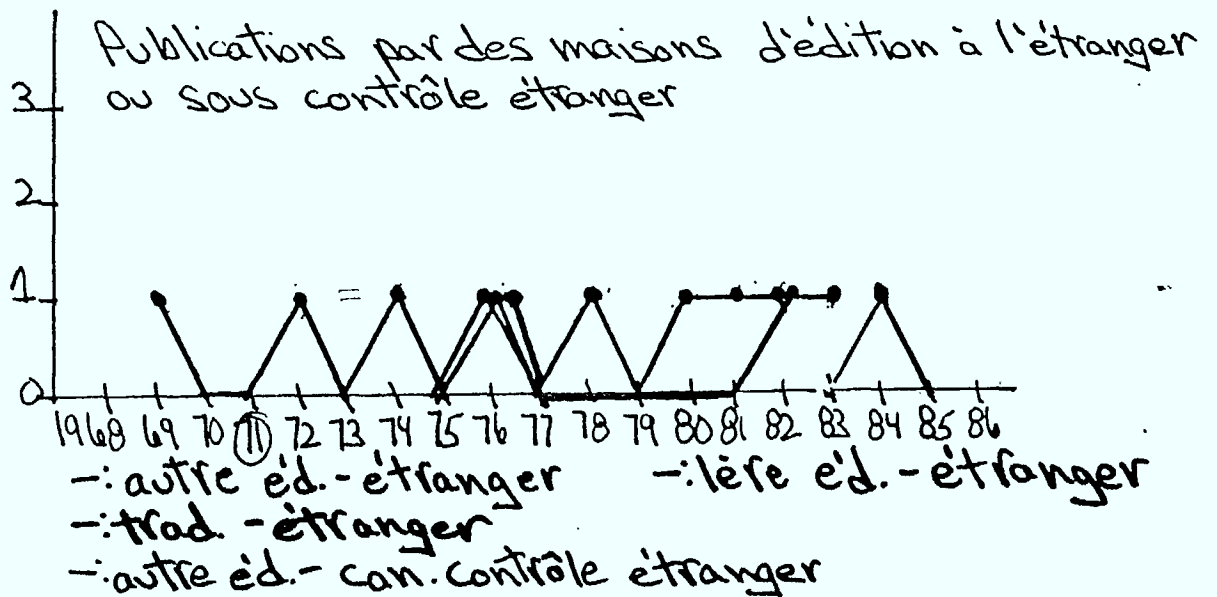 Publications par des maisons d'édition à l'étranger
ou sous contrôle étranger
3
2
1
0
1968 69 70 71 72 73 74 75 76 77 78 79 80 81 82 83 84 85 86
-: autre éd. - étranger -: 1ère éd. - étranger
-: trad. - étranger
-: autre éd. - can. contrôle étranger